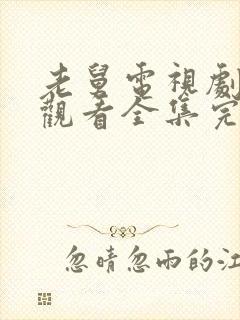 老舅電視劇
觀看全集完
忽晴忽雨的江